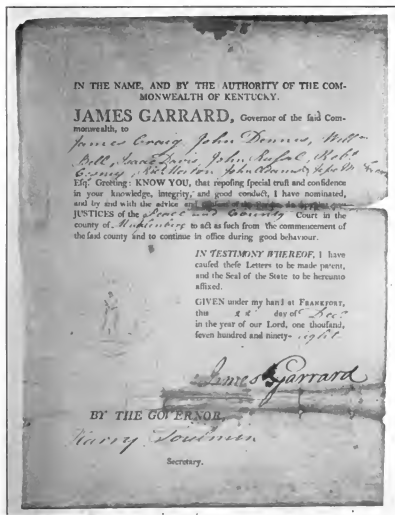 IN THE NAME, AND BY THE AUTHORITY OF THE COM-
MONWEALTH OF KENTUCKY.
JAMES GARRARD, Governor of the said Com-
monwealth, to
James Craig John Dennis, Will
Bell, Isaac Davis, John Russel, Robt
Morton John
Esqrs Greeting: KNOW YOU, that reposing special trust and confidence
in your knowledge, integrity, and good conduct, I have nominated,
and by and with the advice and
JUSTICES of the Peace and County Court in the
county of Muhlenberg to act as such from the commencement of
the said county and to continue in office during good behaviour.
IN TESTIMONY WHEREOF, I have
caused these Letters to be made patent,
and the Seal of the State to be hereunto
affixed.
GIVEN under my hand at FRANKFORT,
this day of Decr
in the year of our Lord, one thousand,
seven hundred and ninety-eight
James Garrard
BY THE GOVERNOR,
Harry Toulmin
Secretary.